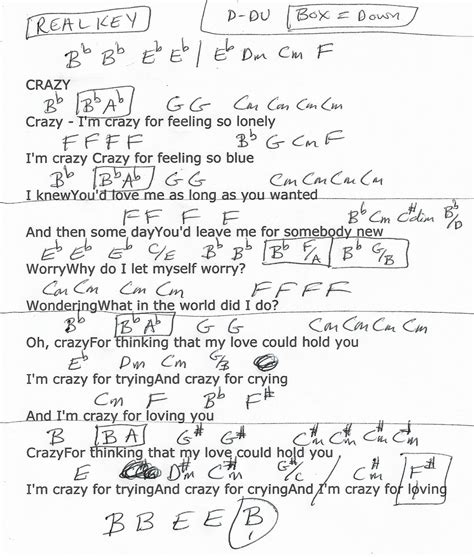 REAL KEY D-DU BOX = DOWN
Bb Bb Eb Eb | Eb Dm Cm F
CRAZY
Bb Bb Ab G G Cm Cm Cm Cm
Crazy - I'm crazy for feeling so lonely
F F F F Bb G Cm F
I'm crazy Crazy for feeling so blue
Bb Bb Ab G G Cm Cm Cm Cm
I knewYou'd love me as long as you wanted
F F F F Bb Cm C#dim Bb/D
And then some dayYou'd leave me for somebody new
Eb Eb Eb C/E Bb Bb Bb F/A Bb G/B
WorryWhy do I let myself worry?
Cm Cm Cm Cm F F F F
WonderingWhat in the world did I do?
Bb Bb Ab G G Cm Cm Cm Cm
Oh, crazyFor thinking that my love could hold you
Eb Dm Cm G/B
I'm crazy for tryingAnd crazy for crying
Cm F Bb F#
And I'm crazy for loving you
B B A G# G# C#m C#m C#m C#m
CrazyFor thinking that my love could hold you
E D#m C#m G#/C C#m F#
I'm crazy for tryingAnd crazy for cryingAnd I'm crazy for loving
B B E E B